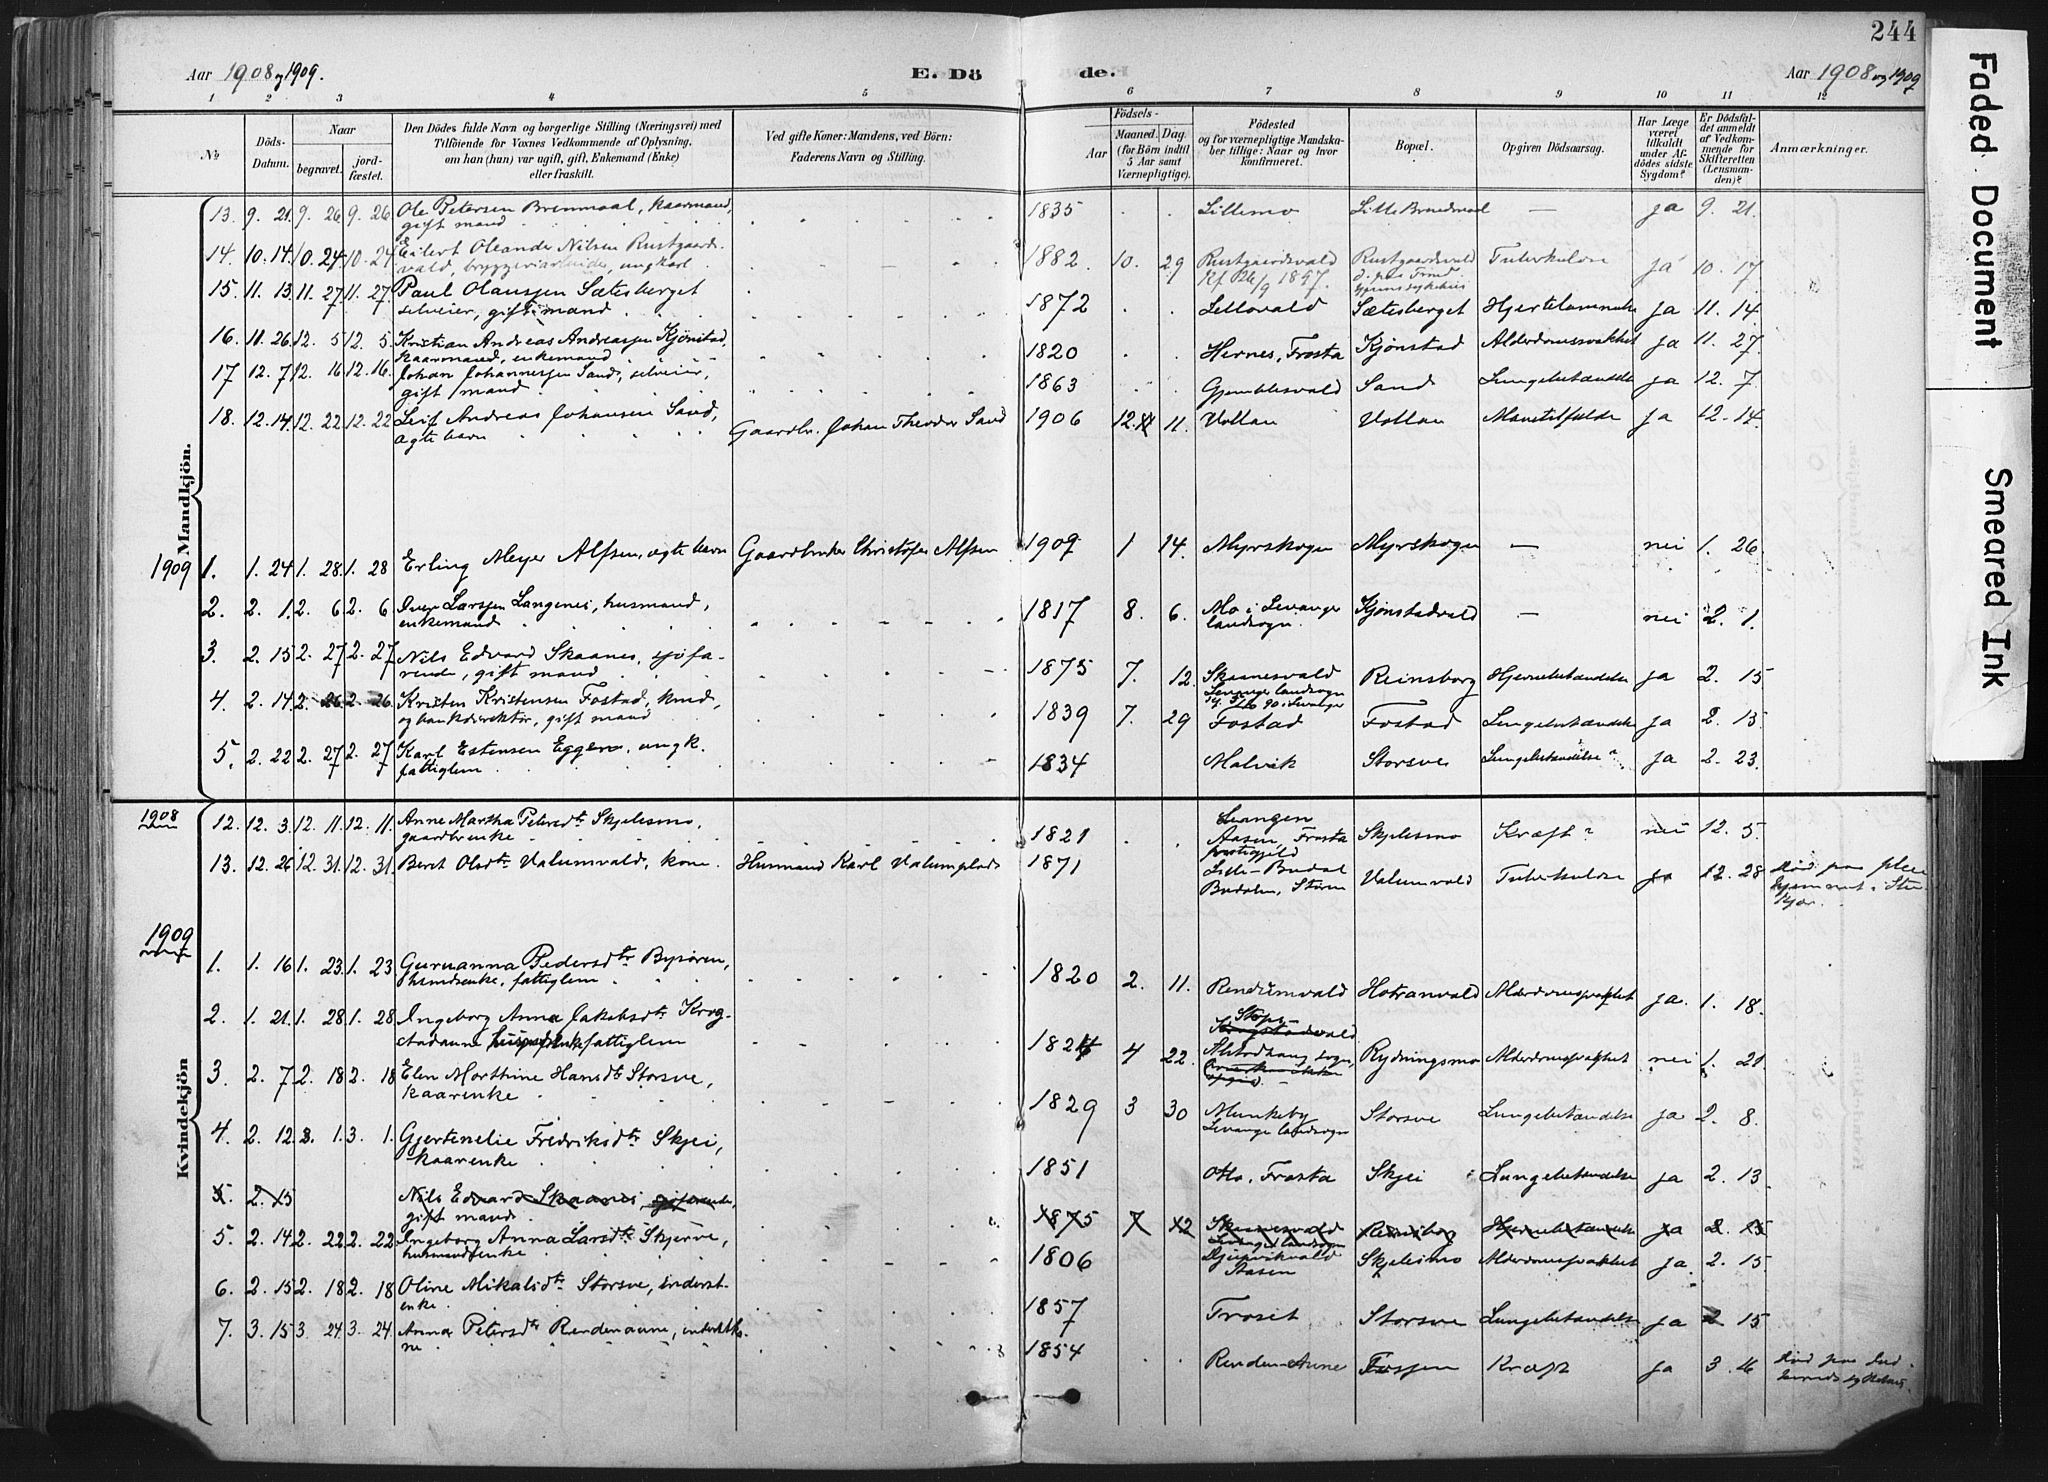 244
Aar 1908 og 1909.
E. Döde.
Aar 1908 og 1909
1 2 3 4 5 6 7 8 9 10 11 12
No
Döds-Datum.
Naar
begravet.
jordfæstet.
Den Dödes fulde Navn og borgerlige Stilling (Næringsvei) med
Tilföiende for Voxnes Vedkommende af Oplysning,
om han (hun) var ugift, gift, Enkemand (Enke)
eller fraskilt.
Ved gifte Koner: Mandens, ved Börn:
Faderens Navn og Stilling.
Födsels-
Aar
Maaned. Dag.
(for Börn indtil
5 Aar samt
Værnepligtige).
Födested
og for værnepligtige Mandskaber tillige: Naar og hvor
konfirmeret.
Bopæl.
Opgiven Dödsaarsag.
Har Læge
været
tilkaldt
under Afdödes sidste
Sygdom?
Er Dödsfaldet anmeldt
af Vedkommende for
Skifteretten
(Lensmanden)?
Anmærkninger.
Mandkjön.
13. 9. 21. 9. 26 9. 26 Ole Petersen Brenmoal, kaarmand, 1835 Lillemo ja 9. 21.
gift mand
14. 10. 14. 10. 24. 10. 24 Eilert Oleander Nilsen Rustgaards- 1882 10. 29 Rustgaardsvald Rustgaardsvald Tuberkulose ja 10. 17
vald, bryggeriarbeider, ungkarl
15. 11. 13. 11. 27. 11. 27 Paul Olaussen Sætesberget 1872 Sætesberget ja 11. 14
selveier, gift mand
16. 11. 26. 12. 5 12. 5 Kristian Andreas Andreassen Kjönstad, 1820 Hernes, Frosta Kjönstad Alderdomssvakhet ja 11. 27
kaarmand, enkemand
17 12. 7 12. 16 12. 16. Johan Johannessen Sand, selveier, 1863 Gjemblesvald Sand Lungebetændelse ja 12. 7
gift mand
18. 12. 14. 12. 22. 12. 22 Leif Andreas Johansen Sand, Gaardbr. Johan Theodor Sand 1906 12. 11. Vollan Vollan ja 12. 14.
ægte barn
1909
1. 1. 24 1. 28. 1. 28 Erling Meyer Alfsen, ægte barn Gaardbruker Christofer Alfsen 1909 1 14. Myrskogen Myrskogen — nei 1. 26
2. 2. 1. 2. 6 2. 6 Iver Larssen Langenes, husmand, 1817 8. 6. Mo i Levanger Kjönstadvald — nei 2. 1.
enkemand landsogn.
3. 2. 15 2. 27 2. 27 Nils Edvard Skaanes, sjöfa- 1875 7. 12 Skaanesvald Reinsborg Hjernebetændelse ja 2. 15
rende, gift mand Levanger landsogn
4. 2. 14 2. 26 2. 26 Kristen Kristensen Fostad, 1839 7. 29 Fostad Fostad Lungebetændelse ja 2. 15
og bankdirektör, gift mand
5. 2. 22 2. 27 2. 27 Karl Estensen Eggen, ungk. 1834 Malvik Storsve Lungebetændelse? ja 2. 23.
fattiglem
Kvindekjön
1908
12. 12. 3. 12. 11. 12. 11. Anne Martha Petersdtr Skjelesmo, 1821 Aasen, Frosta Skjelesmo Kræft? nei 12. 5.
gaardbrenke præstegjeld
13. 12. 26 12. 31. 12. 31. Beret Olsdtr Valumvald, kone. Husmand Karl Valumplads 1871 Lille-Budal Valumvald Tuberkulose ja 12. 28 död paa pleie
Budalen, Stören hjemmet i Sten
kjær.
1909
1. 1. 16 1. 23. 1. 23 Guruanna Pedersdtr Bysören, 1820 2. 11. Rendumvald Hotranvald Alderdomssvakhet ja. 1. 18.
husmdsenke, fattiglem
2. 1. 21. 1. 28 1. 28 Ingeborg Anna Jakobsdtr Krog- 4 22. Rydningsmo Alderdomssvakhet nei 1. 21
stadaune fattiglem
3. 2. 7 2. 18 2. 18 Elen Marthine Hansdtr Storsve, 1829 3 30 Munkeby Storsve Lungebetændelse ja 2. 8.
kaarenke Levanger landsogn
4. 2. 12. 3. 1. 3. 1. Gjertenelie Fredriksdtr Skjei, 1851 Frosta Skjei Lungebetændelse ja 2. 13
kaarenke
5. 2. 15 Nils Edvard Skaanes sjöfarende, 1875 7 12 Skaanesvald Reinsborg Hjernebetændelse ja 2. 15
gift mand. Levanger landsogn
5. 2. 14 2. 22 2. 22 Ingeborg Anna Larsdtr Skjerve, 1806 Djupvikvald Skjelesmo Alderdomssvakhet ja 2. 15.
husmandsenke Aasen
6. 2. 15 2. 18 2. 18 Oline Mikalsdtr Storsve, inderst- 1857 Troset Storsve Lungebetændelse ja 2 15
enke.
7. 3. 15 3. 24 3. 24. Anna Petersdtr Rendenaune, 1854 Renden-Aune Fossjen Kræft ja 3. 16 död paa Ind-
ne
Faded Document
Smeared Ink